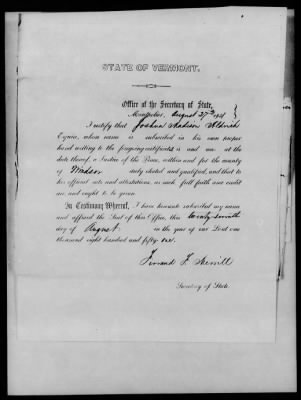 STATE OF VERMONT.
Office of the Secretary of State,
Montpelier, August 27th 1851
I certify that Joshua Madison Aldrich
Esquire, whose name is subscribed in his own proper
hand writing to the foregoing certificate is and was at the
date thereof, a Justice of the Peace, within and for the county
of Windsor duly elected and qualified, and that to
his official acts and attestations, as such, full faith and credit
are, and ought to be given.
In Testimony Whereof, I have hereunto subscribed my name
and affixed the Seal of this Office, this twenty seventh
day of August in the year of our Lord one
thousand eight hundred and fifty one.
Ferrand F. Merrill
Secretary of State.